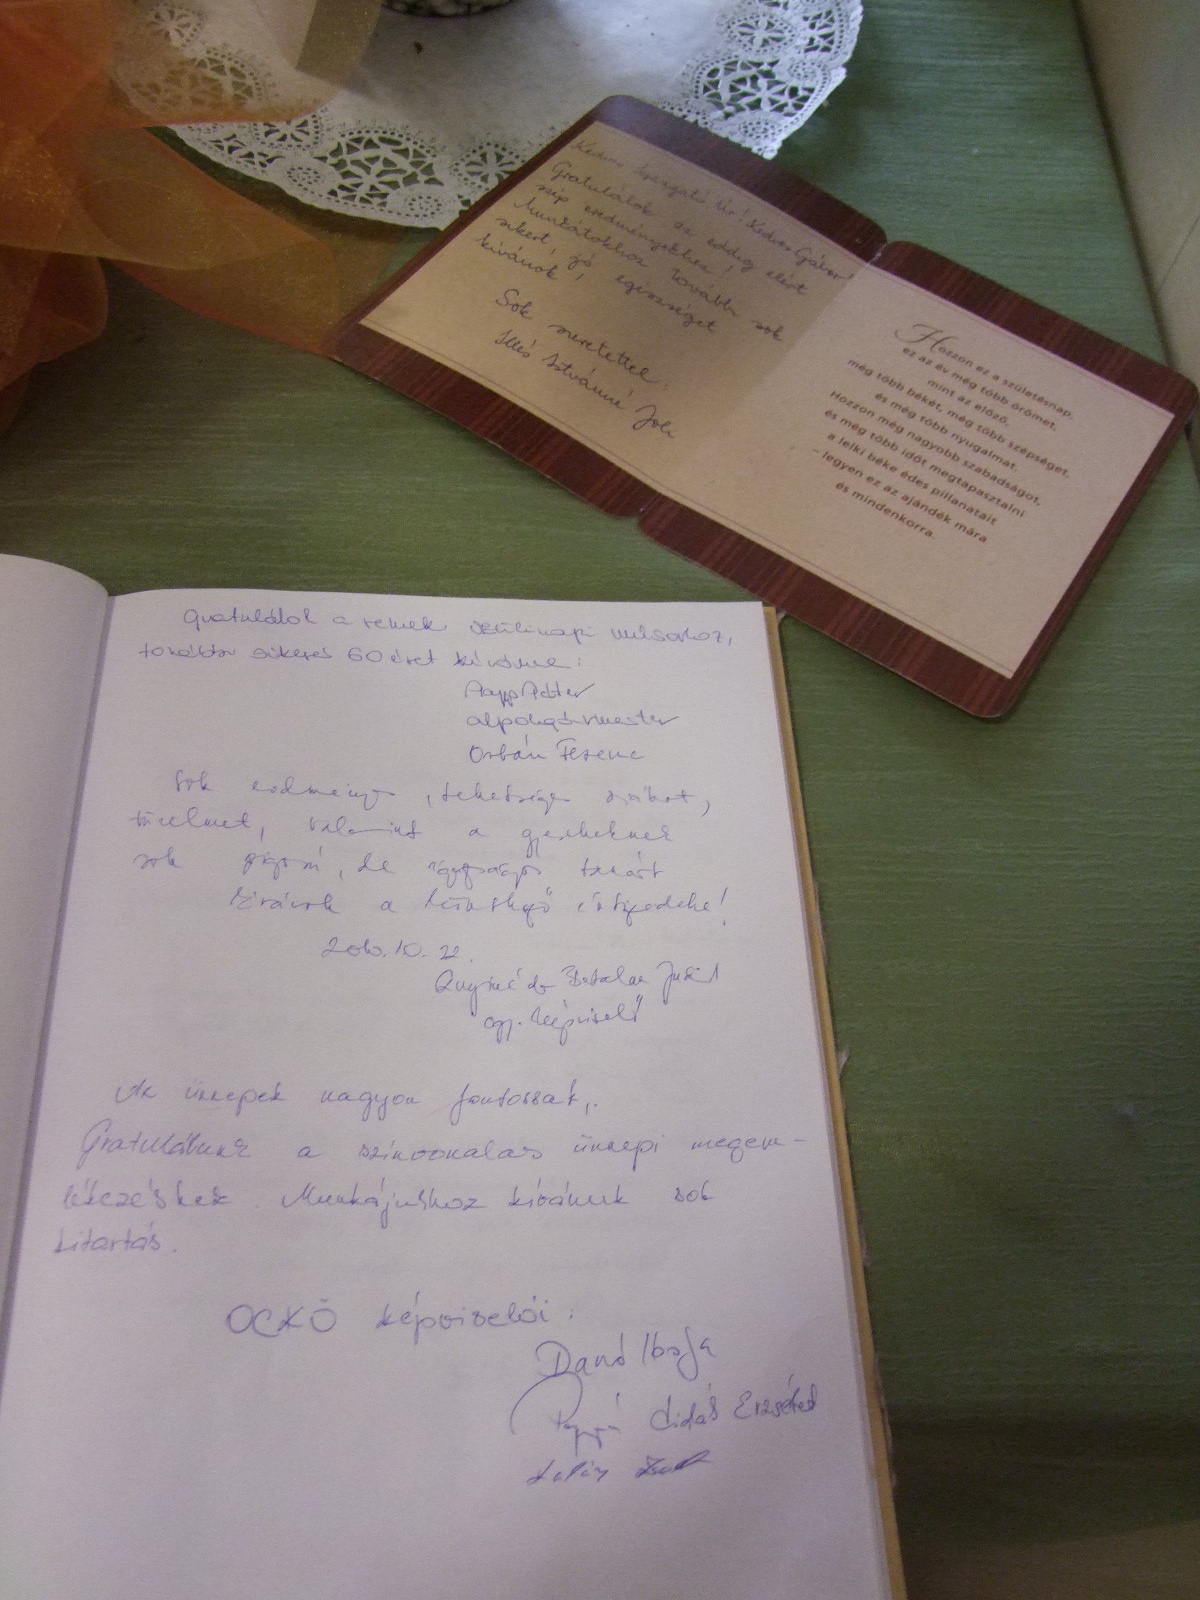 Kedves Igazgató úr! Kedves Gábor!
Gratulálok az eddig elért
szép eredményekhez!
Munkátokhoz további sok
sikert, jó egészséget
kívánok!
Sok szeretettel:
Illés Istvánné Joli
Hozzon ez a születésnap,
ez az év még több örömet,
mint az előző,
még több békét, még több szépséget,
és még több nyugalmat.
Hozzon még nagyobb szabadságot,
és még több időt megtapasztalni
a lelki béke édes pillanatait
– legyen ez az ajándék mára
és mindenkorra.
Gratulálok a remek szülinapi műsorhoz,
további sikeres 60 évet kívánva:
Papp Péter
alpolgármester
Orbán Ferenc
Sok eredményt, tehetséges
türelmet, valamint a gyerekeknek
sok szigorú, de igazságos tanárt
kívánok a következő évtizedekre!
2010.10.22.
Judit
ogy. képviselő
Az ünnepek nagyon fontosak,
Gratulálunk a színvonalas ünnepi megem-
lékezéshez. Munkájukhoz kívánunk sok
kitartás.
OCKÖ képviselői:
Dani Ibolya
Pappné Cidás Erzsébet